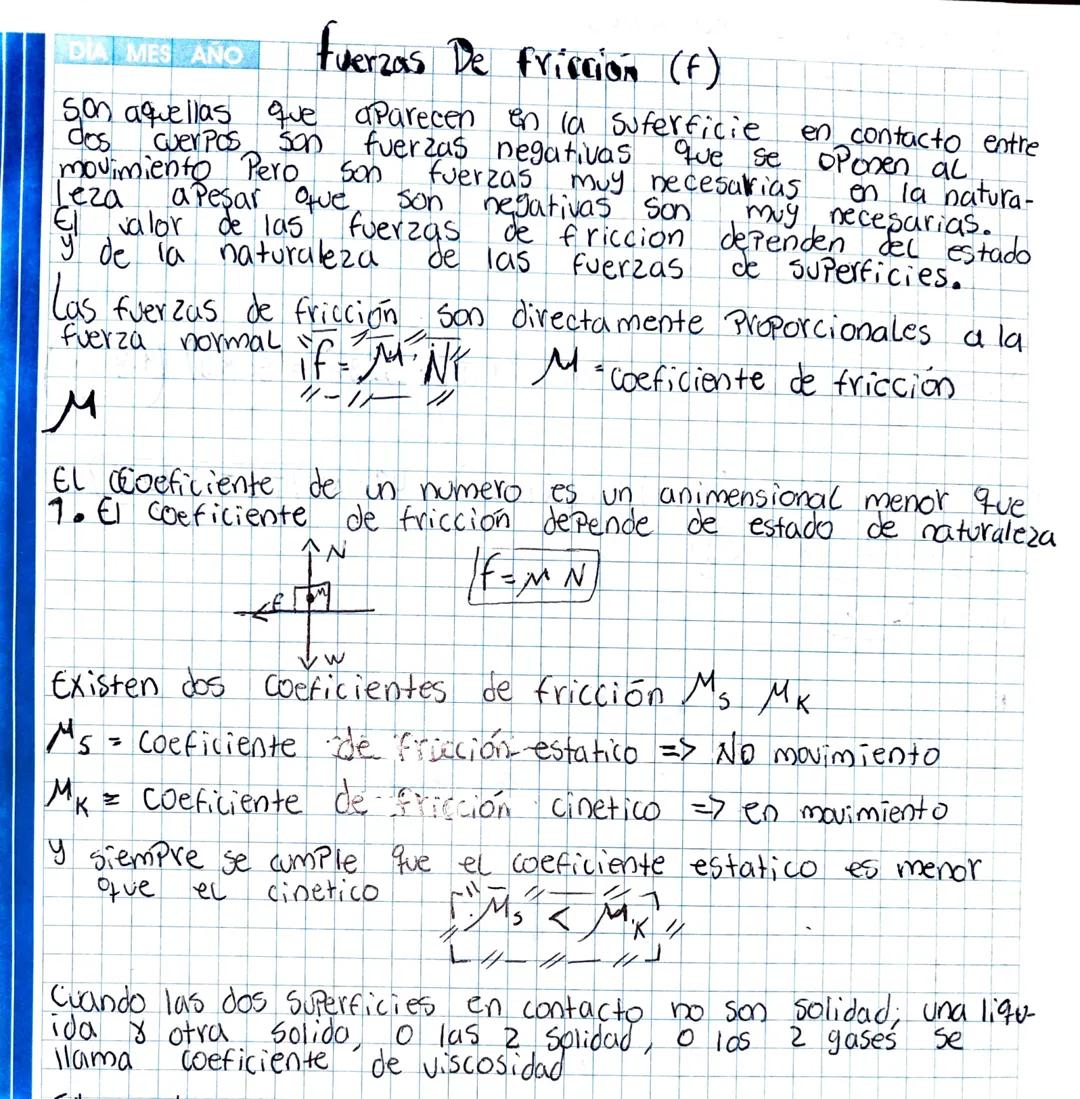 DIA MES AÑO
fuerzas De fricción (f)
son aquellas que aparecen en la suferficie en contacto entre
dos cuerpos son fuerzas negativas que se oponen al
movimiento Pero son fuerzas muy necesarias en la natura-
leza apesar que son negativas son muy necesarias.
El valor de las fuerzas de friccion dependen del estado
y de la naturaleza de las fuerzas de superficies.
Las fuerzas de fricción son directamente Proporcionales a la
fuerza normal f = μ · N μ = coeficiente de fricción
μ
El coeficiente de un numero es un animensional menor que
1. El coeficiente de fricción depende de estado de naturaleza
N
f = μ N
f M
W
Existen dos coeficientes de fricción μs μK
μs = coeficiente de fricción estatico => No movimiento
μK = coeficiente de fricción cinetico => en movimiento
y siempre se cumple que el coeficiente estatico es menor
que el cinetico
μs < μK
Cuando las dos superficies en contacto no son solidad; una liqu-
ida y otra solido, o las 2 solidad, o los 2 gases se
llama coeficiente de viscosidad